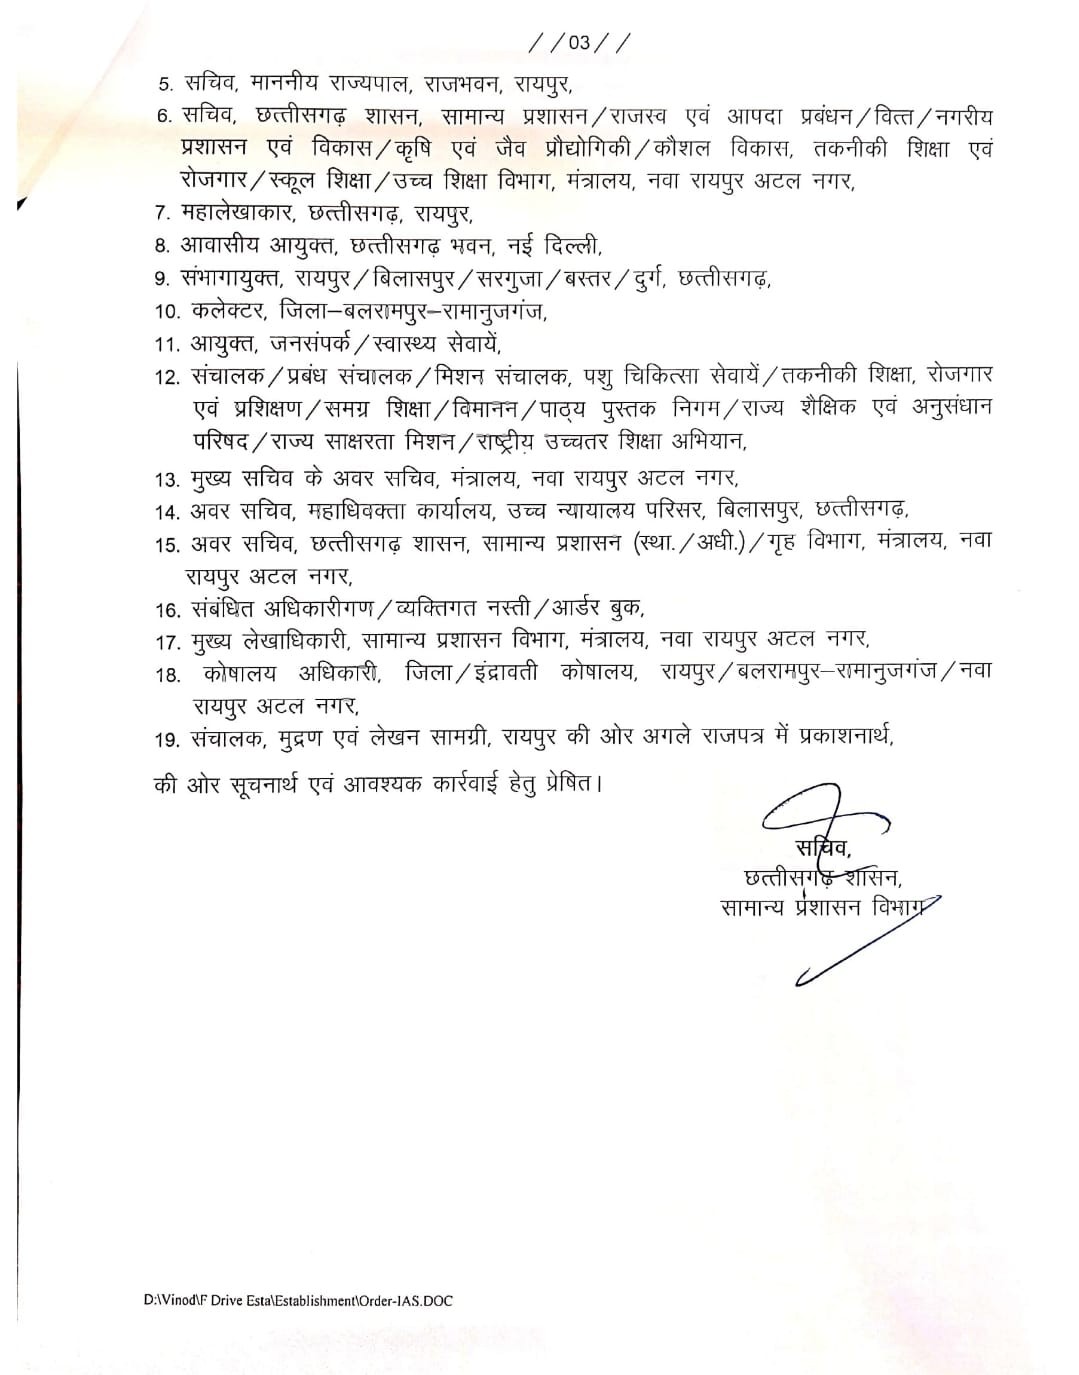 //03//
5. सचिव, माननीय राज्यपाल, राजभवन, रायपुर,
6. सचिव, छत्तीसगढ़ शासन, सामान्य प्रशासन/राजस्व एवं आपदा प्रबंधन/वित्त/नगरीय
प्रशासन एवं विकास/कृषि एवं जैव प्रौद्योगिकी/कौशल विकास, तकनीकी शिक्षा एवं
रोजगार/स्कूल शिक्षा/उच्च शिक्षा विभाग, मंत्रालय, नवा रायपुर अटल नगर,
7. महालेखाकार, छत्तीसगढ़, रायपुर,
8. आवासीय आयुक्त, छत्तीसगढ़ भवन, नई दिल्ली,
9. संभागायुक्त, रायपुर/बिलासपुर/सरगुजा/बस्तर/दुर्ग, छत्तीसगढ़,
10. कलेक्टर, जिला–बलरामपुर–रामानुजगंज,
11. आयुक्त, जनसंपर्क/स्वास्थ्य सेवायें,
12. संचालक/प्रबंध संचालक/मिशन संचालक, पशु चिकित्सा सेवायें/तकनीकी शिक्षा, रोजगार
एवं प्रशिक्षण/समग्र शिक्षा/विमानन/पाठ्य पुस्तक निगम/राज्य शैक्षिक एवं अनुसंधान
परिषद/राज्य साक्षरता मिशन/राष्ट्रीय उच्चतर शिक्षा अभियान,
13. मुख्य सचिव के अवर सचिव, मंत्रालय, नवा रायपुर अटल नगर,
14. अवर सचिव, महाधिवक्ता कार्यालय, उच्च न्यायालय परिसर, बिलासपुर, छत्तीसगढ़,
15. अवर सचिव, छत्तीसगढ़ शासन, सामान्य प्रशासन (स्था./अधी.)/गृह विभाग, मंत्रालय, नवा
रायपुर अटल नगर,
16. संबंधित अधिकारीगण/व्यक्तिगत नस्ती/आर्डर बुक,
17. मुख्य लेखाधिकारी, सामान्य प्रशासन विभाग, मंत्रालय, नवा रायपुर अटल नगर,
18. कोषालय अधिकारी, जिला/इंद्रावती कोषालय, रायपुर/बलरामपुर–रामानुजगंज/नवा
रायपुर अटल नगर,
19. संचालक, मुद्रण एवं लेखन सामग्री, रायपुर की ओर अगले राजपत्र में प्रकाशनार्थ,
की ओर सूचनार्थ एवं आवश्यक कार्रवाई हेतु प्रेषित।
सचिव,
छत्तीसगढ़ शासन,
सामान्य प्रशासन विभाग
D:\Vinod\F Drive Esta\Establishment\Order-IAS.DOC